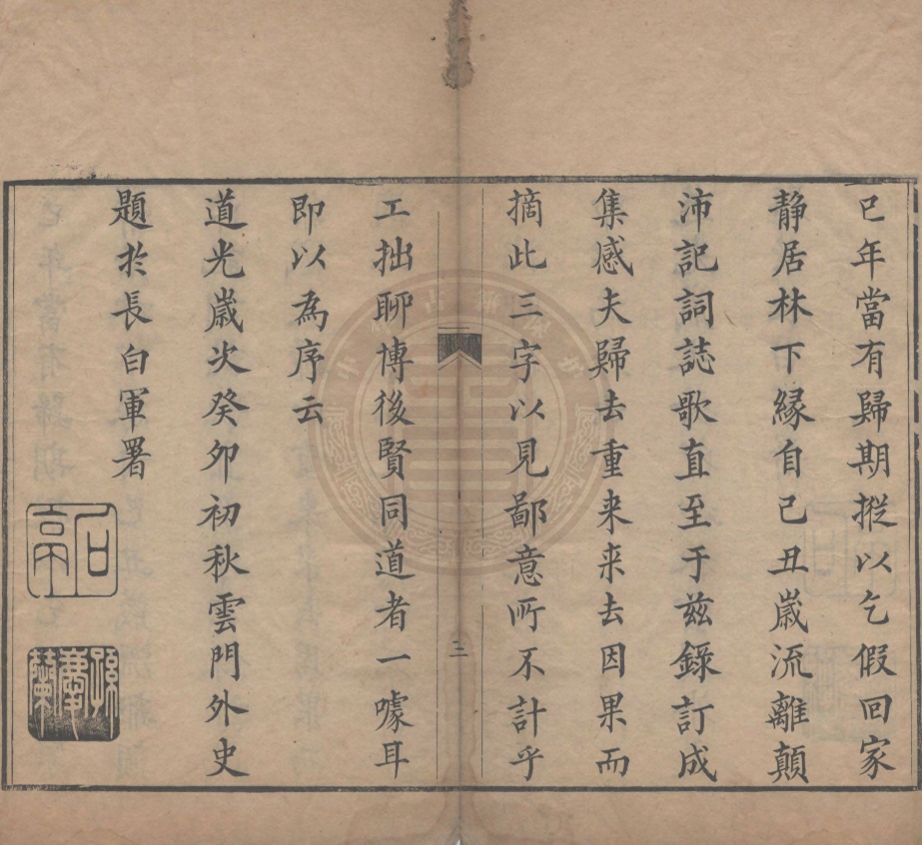 已年當有歸期摐以乞假回家
静居林下縁自己丑嵗流離顛
沛記詞誌歌直至于兹錄訂成
集感夫歸去重来来去因果而
摘此三字以見鄙意所不計乎
三
工拙聊博後賢同道者一噱耳
即以為序云
道光嵗次癸卯初秋雲門外史
題於長白軍署